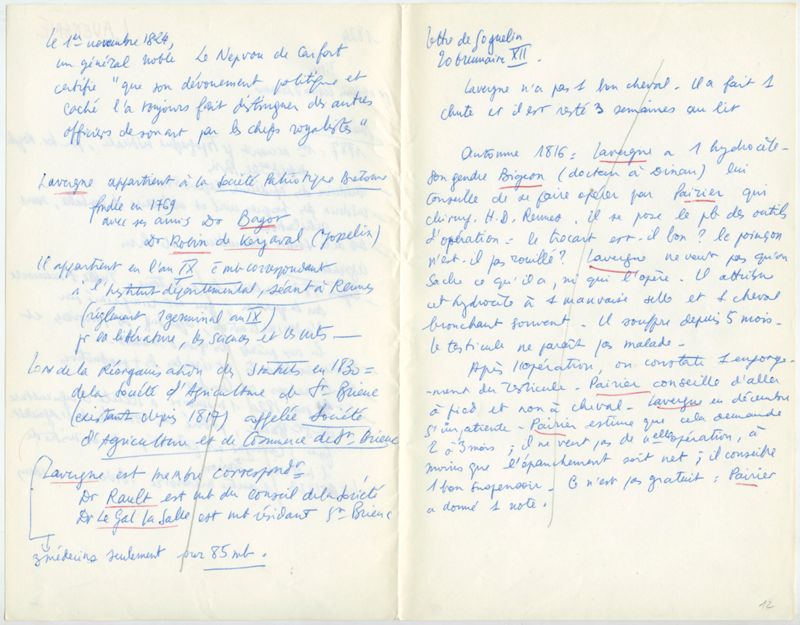 Le 1er novembre 1824,
un général noble Le Nepvou de Carfort
certifie "que son dévouement politique et
caché l'a toujours fait distinguer des autres
officiers de son art par les chefs royalistes"
Lavergne appartient à la Société Patriotique Bretonne
fondée en 1769
avec ses amis Dr Bagot
Dr Robin de Kerjaval (Josselin)
Il appartient en l'an IX c mt correspondant
à l'Institut départemental, séant à Rennes
(règlement 1 germinal an IX)
pr la littérature, les sciences et les arts —
Lors de la Réorganisation des Statuts en 1830 =
de la Société d'Agriculture de St Brieuc
(existant depuis 1817) appelée Société
d'Agriculture et de Commerce de St Brieuc
Lavergne est membre correspondt
Dr Rault est mt du conseil de la Société
Dr Le Gal la Salle est mt résidant St Brieuc
3 médecins seulement pour 85 mb.
lettre de Goguelin
20 brumaire XII.
Lavergne n'a pas 1 bon cheval. Il a fait 1
chute et il est resté 3 semaines au lit
Automne 1816 = Lavergne a 1 hydrocèle-
son gendre Bigeon (docteur à Dinan) lui
conseille de se faire opérer par Pairier qui
chirurg. H.D. Rennes. Il se pose le pb des outils
d'opération = le trocart est-il bon ? le poinçon
n'est-il pas rouillé ? Lavergne ne veut pas qu'on
sache ce qu'il a, ni qui l'opère. Il attribue
cet hydrocèle à 1 mauvaise selle et 1 cheval
bronchant souvent. Il souffre depuis 5 mois-
le testicule ne paraît pas malade-
Après l'opération, on constate 1 engorge-
-ment du testicule - Pairier conseille d'aller
à pied et non à cheval - Lavergne en décembre
s'impatiente - Pairier estime que cela demande
2 à 3 mois ; il ne veut pas de opération, à
moins que l'épanchement soit net ; il conseille
1 bon suspensoir - Ce n'est pas gratuit = Pairier
a donné 1 note.
12